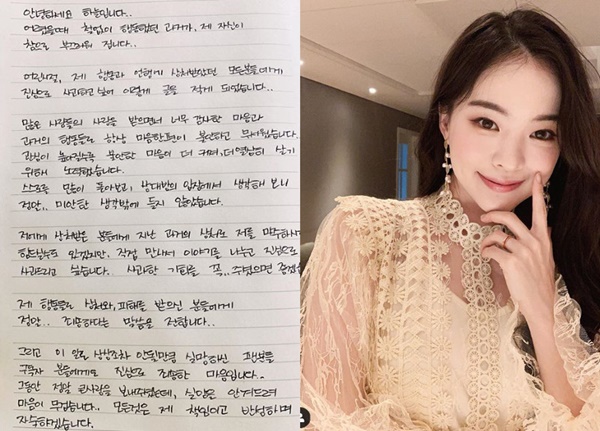 안녕하세요 하늘입니다..
어렸을때 철없이 행동했던 과거가, 제 자신이
참으로 부끄러워 집니다..
어린시절, 제 행동과 언행에 상처받았던 모든분들에게
진심으로 사과하고싶어 이렇게 글을 적게 되었습니다..
많은 사람들의 사랑을 받으면서 너무 감사한 마음과
과거의 행동들로 항상 마음한편이 불안하고 무서웠습니다
관심이 높아질수록 불안한 마음이 더 커져, 더 열심히 살기
위해 노력했습니다.
스스로를 많이 돌아보고, 상대방의 입장에서 생각해 보니
정말.. 미안한 생각밖에 들지 않았습니다.
저에게 상처받은 분들에게 지난 과거의 상처로 저를 마주하시
힘드실수도 있겠지만, 직접 만나서 이야기를 나누고 진심으로
사과드리고 싶습니다.. 사과할 기회를 꼭.. 주셨으면 좋겠습
제 행동들로 상처와, 피해를 받으신 분들에게
정말.. 죄송하다는 말씀을 전합니다..
그리고 이 일로 상심조차 안될만큼 실망하신 팬분들
구독자 분들에게도 진심으로 죄송한 마음입니다..
그동안 정말 큰사랑을 보내주셨는데, 실망을 안겨드려
마음이 무겁습니다.. 모든것은 제 책임이고 반성하며
자숙하겠습니다.